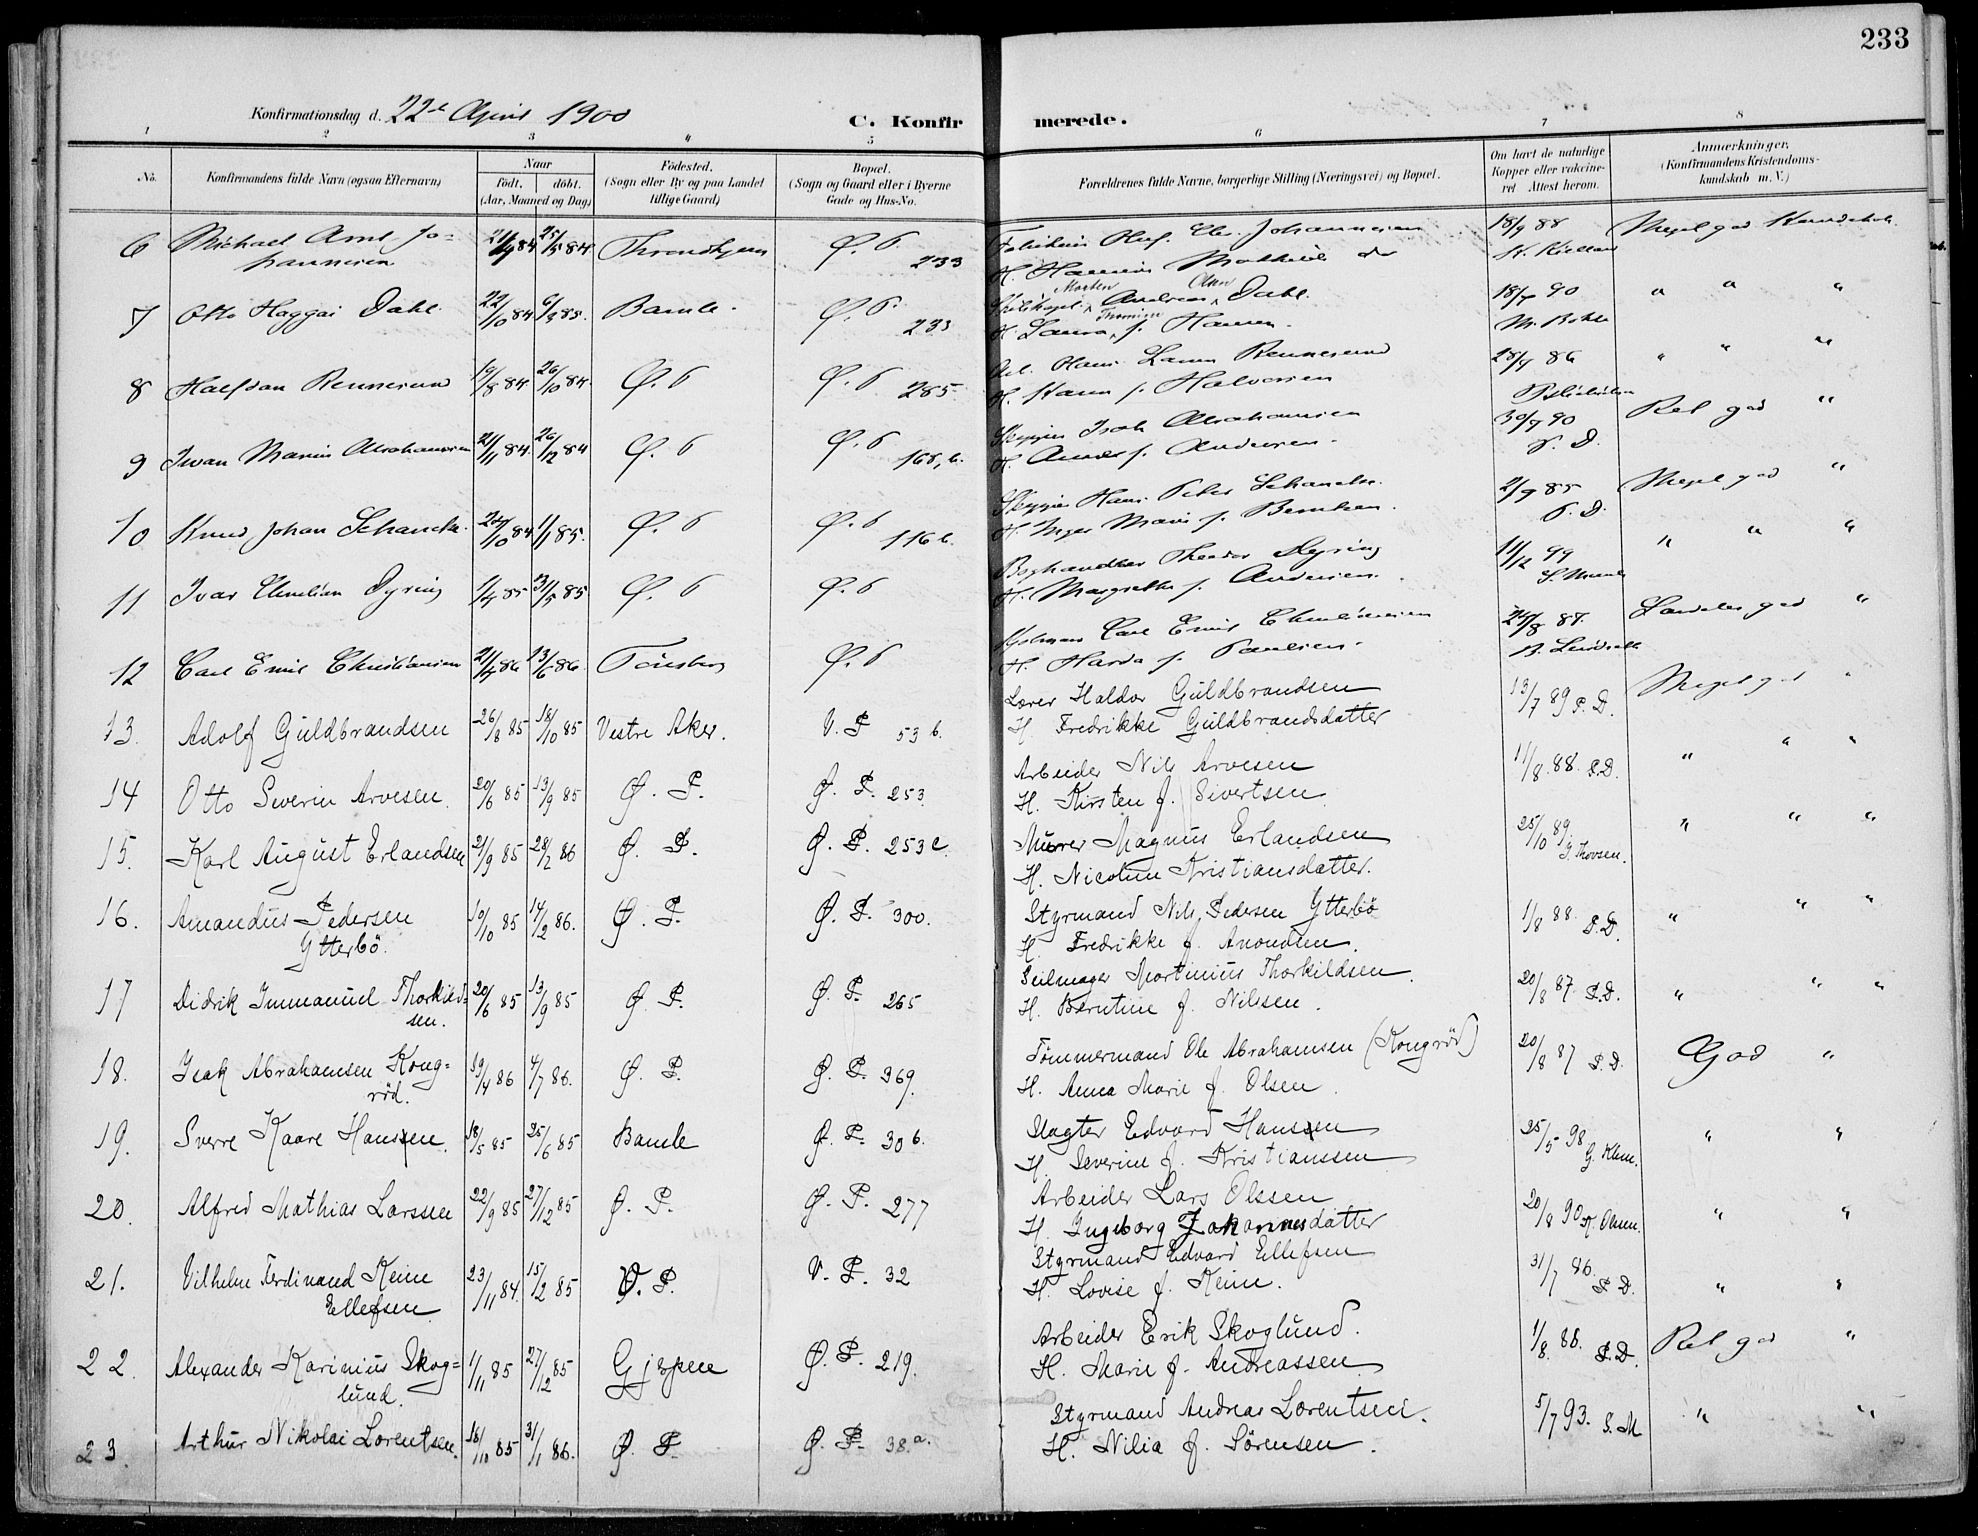 233
Konfirmationsdag d. 22de April 1900
C. Konfirmerede.
1 2 3 4 5 6 7 8
No.
Konfirmandens fulde Navn (ogsaa Efternavn)
Naar
født. døbt.
(Aar, Maaned og Dag)
Fødested.
(Sogn eller By og paa Landet
tillige Gaard)
Bopæl.
(Sogn og Gaard eller i Byerne
Gade og Hus-No.
Forældrenes fulde Navne, borgerlige Stilling (Næringsvei) og Bopæl.
Om havt de naturlige
Kopper eller vakcine-
ret Attest herom.
Anmærkninger.
(Konfirmandens Kristendoms-
kundskab m. V.)
6 Michael Arnt Jo-
hannesen
25/5 84 Throndhjem Ø. P. 233
Johannesen
H. Mathilde
18/9 88
Meget god Kundskab
7 Otto Haggai Dahl 22/10 84 6/3 85. Bamle. Ø. P. 233
Morten Olsen
Andreas Dahl.
H. Laura f. Hansen.
18/7 90 " " "
8 Halfdan Rennesund 19/8 84 26/10 84 Ø. P Ø. P 285
Hans Rennesund
H. f. Halvorsen
28/7 86 " " "
9 Ivan Marius Abrahamsen 2/11 84. 26/12 84 Ø. P Ø. P 168, b.
Skipper Isak Abrahamsen
H. f. Andersen.
30/7 90
P. D.
Ret god "
10 Knud Johan Schanche. 24/10 84 1/1 85. Ø. P Ø. P 116 b.
Skipper Hans Peter Schanche.
H. Inger Marie f.
2/9 85
P. D.
Meget god "
11 Ivar Dyring 1/4 85 31/5 85 Ø. P Ø. P
Boghandler Theodor Dyring
H. Margrethe f. Andersen.
11/12 99 " " "
12 Carl Emil Christiansen 21/4 86 13/6 86. Tønsberg Ø. P
Carl Emil Christiansen
H. f. Paulsen.
god "
13. Adolf Guldbrandsen 26/8 85 18/10 85 Vestre Aker. V. P 53 b.
Lærer Haldor Guldbrandsen
H. Fredrikke Guldbrandsdatter
13/7 89 P. D.
Meget god "
14 Otto Severin Arvesen. 20/6 85 13/9 85 Ø. P. Ø. P. 253
Arbeider Nils Arvesen
H. Kirsten f. Sivertsen
11/8. 88. P. D. " " "
15. Karl August Erlandsen 21/9 85 28/2 86 Ø. P. Ø. P. 253 c.
Murer Magnus Erlandsen
H. Nicoline Kristiansdatter.
25/10 89 J. Thovsen. " " "
16. Amandus Pedersen
Ytterbö.
10/10 85 14/2 86. Ø. P. Ø. P. 300.
Styrmand Nils Pedersen Ytterbö
H. Fredrikke f.
1/8 88. P. D. " " "
17 Didrik Immanuel Thorkild-
sen.
20/6 85 13/9 85 Ø P. Ø. P. 265
Seilmager Martinius Thorkildsen.
H. Berntine f. Nilssen.
20/8 87. P. D. " " "
18. Isak Abrahamsen Kong-
röd.
19/4 86 4/7 86. Ø. P. Ø. P. 369.
Tømmermand Ole Abrahamsen (Kongrød)
H. Anna Marie f. Olsen.
20/8 87 P. D. God "
19. Sverre Kaare Hanssen. 18/5 85 25/6 85 Bamle Ø. P. 306.
Slagter Edvard Hanssen
H. Severine f. Kristianssen
25/5 98 G. Klem. " "
20. Alfred Mathias Larssen 22/9 85 27/12 85 Ø. P. Ø. P. 277
Arbeider Lars Olssen
H. Ingeborg Johannesdatter
20/8 90 K. Olsen. " "
21. Vilhelm Ferdinand Keim
Ellefsen
23/11 84. 15/2 85 V. P. V. P. 32
Styrmand Edvard Ellefsen
H. Lovise f. Keim.
31/7 86. P. D. " "
22. Alexander Karinius Skog-
lund.
1/11 85 27/12 85 Gjerpen Ø. P. 219.
Arbeider Erik Skoglund.
H. Marie f. Andreassen
1/8. 88. P. D. Ret god "
23. Arthur Nikolai Lorentsen. 18/10 85 31/1 86. Ø P. Ø. P. 38.a.
Styrmand Andreas Lorentsen.
H. Nilia f. Sörensen.
5/7 93. S. M " "